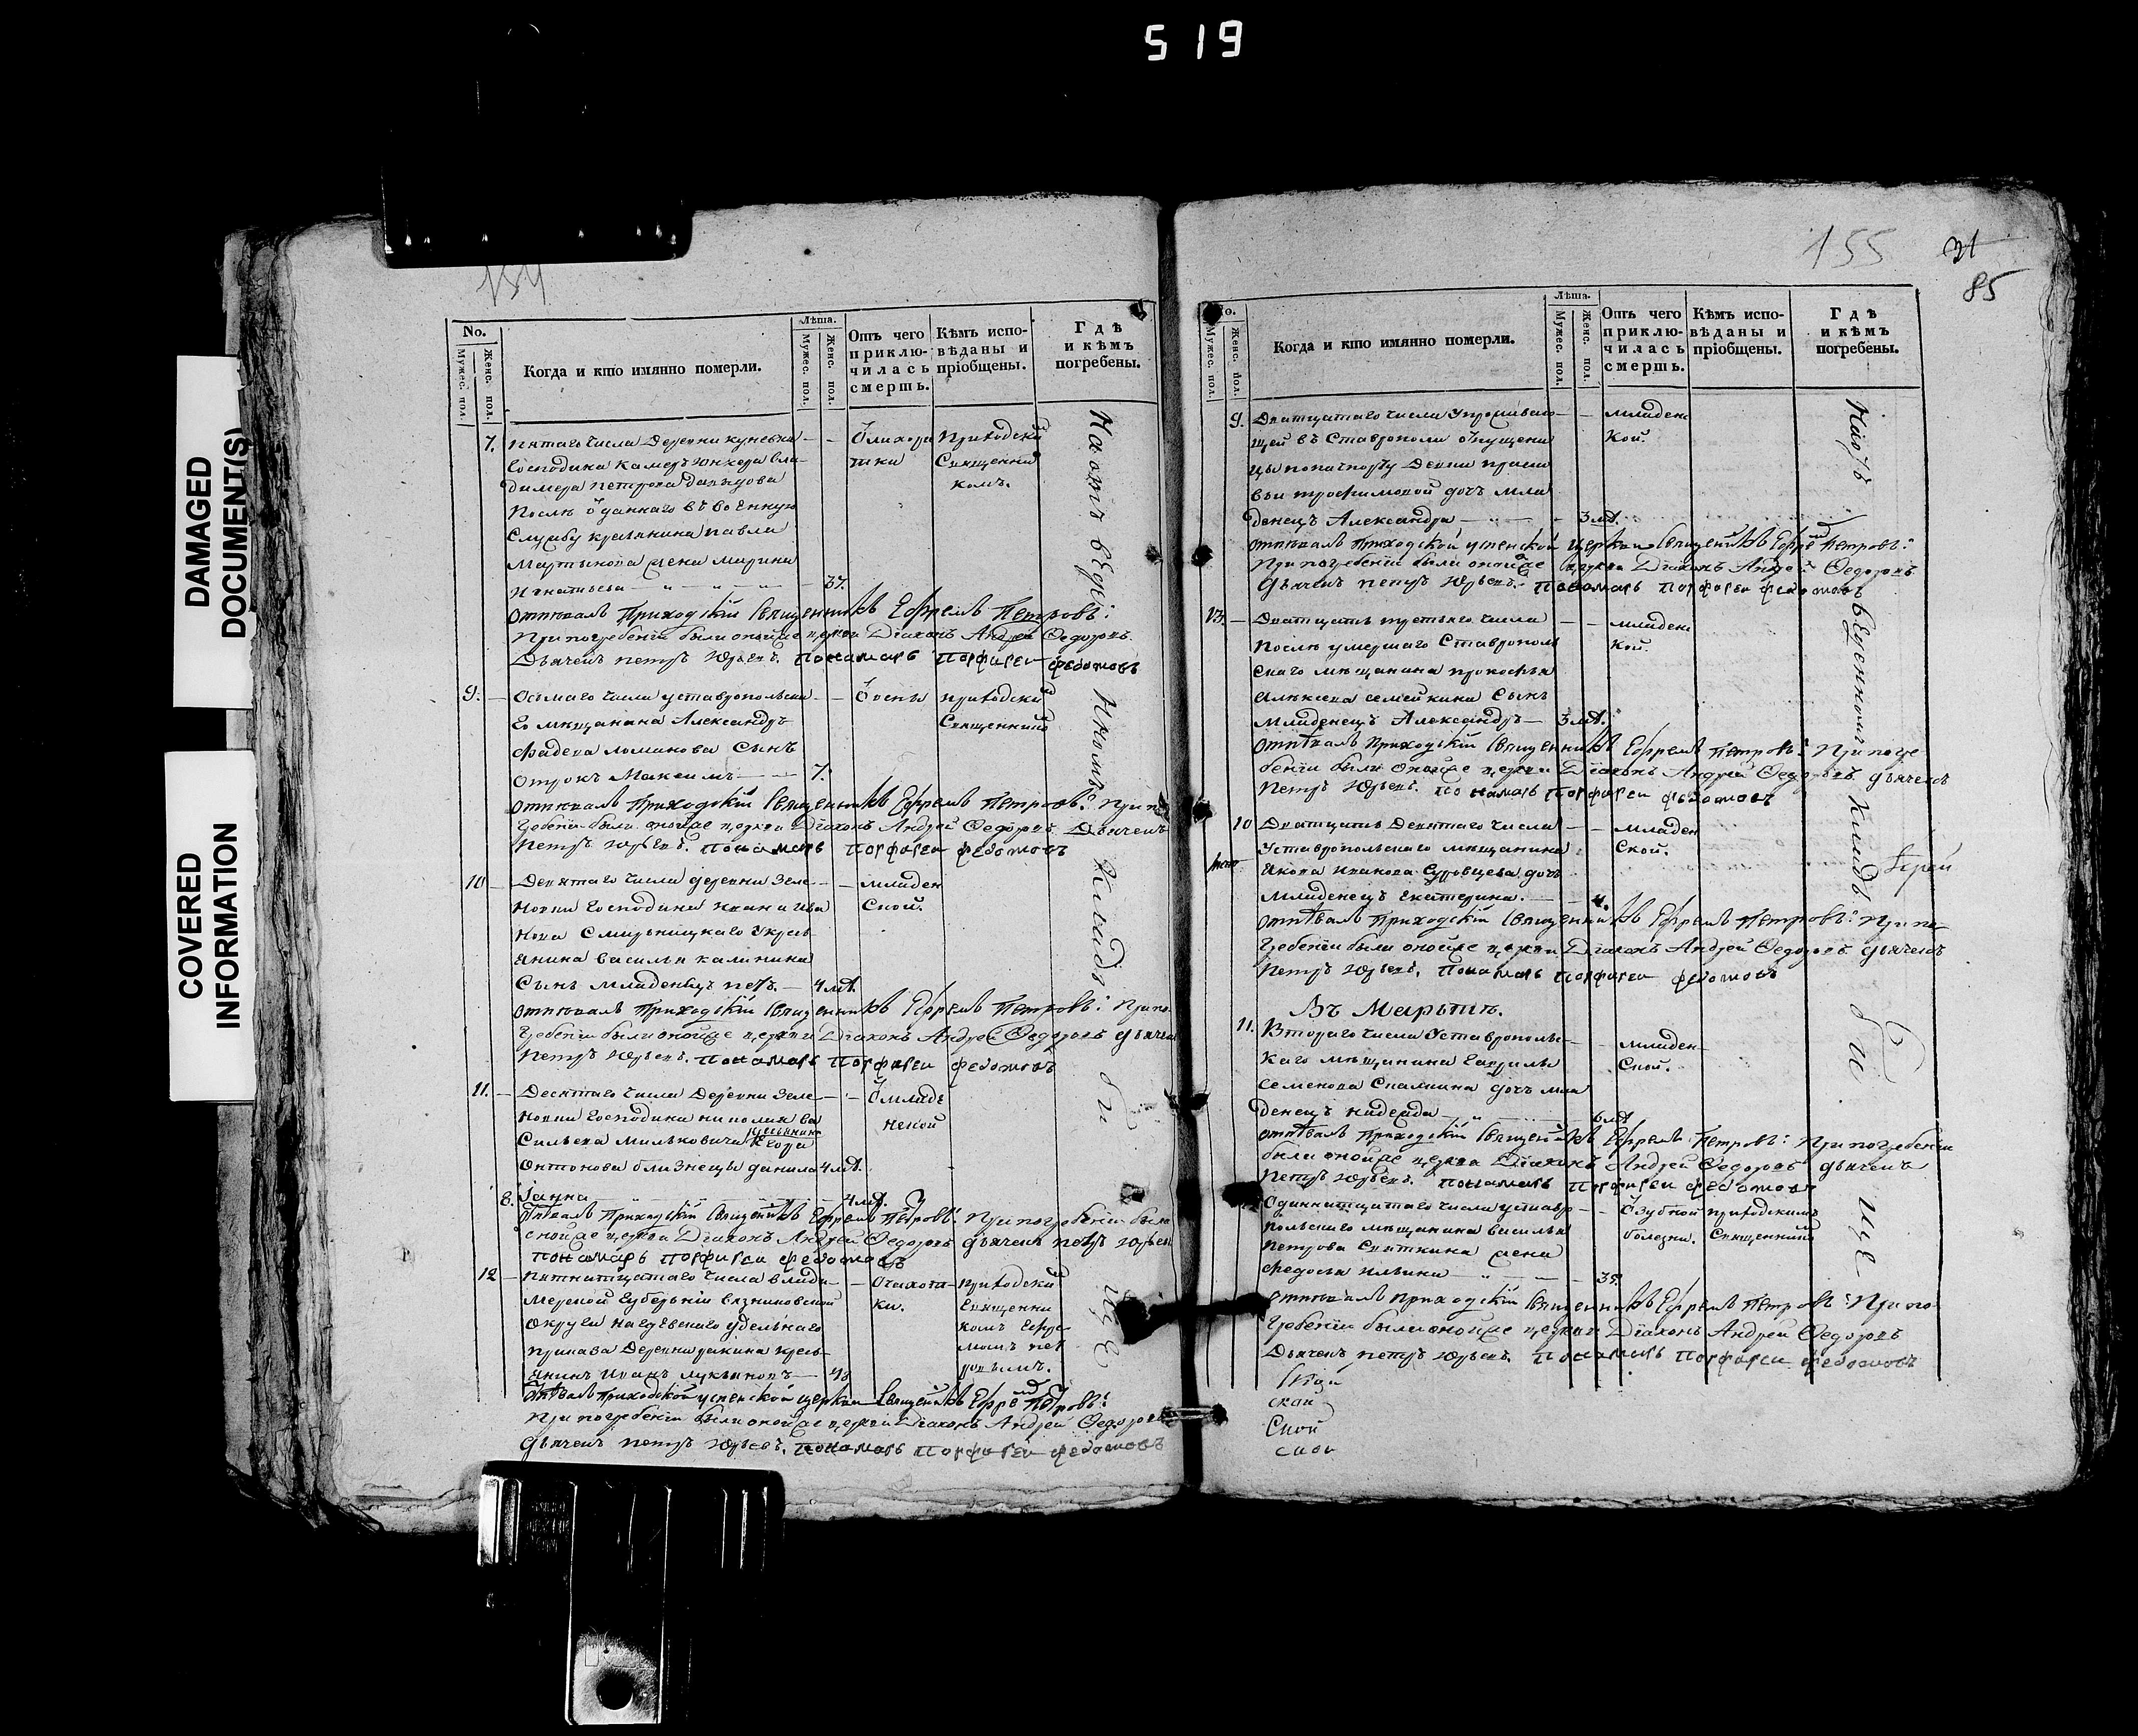 519
DAMAGED
DOCUMENT(S)
COVERED
INFORMATION
154
No.
Мужес. пол.
Женс. пол.
Когда и кто имянно померли.
Лѣта.
Мужес. пол.
Женс. пол.
Отъ чего
приклю-
чилась
смерть.
Кѣмъ испо-
вѣданы и
пріобщены.
Гдѣ
и кѣмъ
погребены.
7. пятаго числа Деревни
Господина Камеръ Юнкера Вла-
димера петрова давыдова
Послѣ ѿданнаго въ военную
Службу крестьянина павла
мартынова жена Марина
Игнатьева — 37.
Ѿ лихора
тки
Приходски
Священни
комъ.
отпѣвалъ Приходскій Священникъ Ефремъ Петровъ:
При погребеніи были онойже церкви Діаконъ Андрей Ѳедоровъ.
Дьячекъ петръ Юрьевъ. пономарь порфирей федотовъ
9. — Осьмаго числа уставропольска
го мѣщанина Александръ
фадеева ломанова Сынъ
отрокъ Максимъ — 7.
Ѿ оспы
приходски
Священнико
отпѣвалъ Приходскій Священникъ Ефремъ Петровъ: При по
гребеніи были онойже церкви Діаконъ Андрей Ѳедоровъ Дьячекъ
Петръ Юрьевъ. пономарь порфирей федотовъ
10 — Девятаго числа деревни Зеле
новки Господина Ивана Ива
нова Смирницкаго Укресть
янина василья калинина
Сынъ младенецъ петръ — 4 мд.
младен
ской.
отпѣвалъ Приходскій Священникъ Ефремъ Петровъ: При по
гребеніи были онойже церкви Діаконъ Андрей Ѳедоровъ дьячекъ
Петръ Юрьевъ. пономарь порфирей федотовъ
11. — Десятаго числа Деревни Зеле
новки Господина николая ва
Сильева Мильковича крестьянина
Егора
онтонова близнецы данила 4 мд.
8. Іанна — 4 мд.
Ѿ младе
нской
Ѿпѣвалъ Приходскій Священникъ Ефремъ Петровъ: При погребеніи были
онойже церкви Діаконъ Андрей Ѳедоровъ дьячекъ петръ Юрьевъ
пономарь порфирей федотовъ
12 — пятнатцатаго числа влади
мерской Губерніи вязниковской
округи удельнаго
приказа Деревни крест
янинъ Иванъ лукьяновъ — 48
Ѿчахот
ки.
приходски
священни
комъ Ефре
момъ пет
ровымъ.
Ѿпѣвалъ приходской успенской церкви Священникъ Ефремъ Петровъ:
При погребеніи были онойже церкви Діаконъ Андрей Ѳедоровъ
Дьячекъ петръ Юрьевъ. пономарь порфирей федотовъ
155
31
85
No.
Мужес. пол.
Женс. пол.
Когда и кто имянно померли.
Лѣта.
Мужес. пол.
Женс. пол.
Отъ чего
приклю-
чилась
смерть.
Кѣмъ испо-
вѣданы и
пріобщены.
Гдѣ
и кѣмъ
погребены.
9. Дватцатаго числа Упроживаю
щей въ Ставрополи ѿпущени
цы попачпорту
трофимовой дочь мла
денецъ Александра — 3 мд.
младен
кой.
отпѣвалъ Приходской успенской церкви Священникъ Ефремъ Петровъ:
При погребеніи были онойже церкви Діаконъ Андрей Ѳедоровъ
Дьячекъ петръ Юрьевъ. пономарь порфирей федотовъ
13. — Дватцать третьяго числа
Послѣ умершаго Ставрополь
скаго мѣщанина прокофья
Алексеева семейкина Сынъ
Младенецъ Александръ — 3 мд.
младен
кой.
отпѣвалъ Приходскій Священникъ Ефремъ Петровъ: При погре
беніи были онойже церкви Діаконъ Андрей Ѳедоровъ дьячекъ
Петръ Юрьевъ. пономарь порфирей федотовъ
10 Дватцать Девятаго числа
Уставропольскаго мѣщанина
Якова Иванова Суровцева дочь
Младенецъ Екатерина. — 4.
младен
ской.
отпѣвалъ Приходскій Священникъ Ефремъ Петровъ: При по
гребеніи были онойже церкви Діаконъ Андрей Ѳедоровъ дьячекъ
Петръ Юрьевъ. пономарь порфирей федотовъ
Въ Мартѣ.
11. Втораго числа Уставрополь
скаго мѣщанина Гаврилы
Семенова дочь мла
денецъ надежда — 6 мд
младен
ской.
отпѣвалъ Приходскій Священникъ Ефремъ Петровъ: При погребеніи
были онойже церкви Діаконъ Андрей Ѳедоровъ дьячекъ
Петръ Юрьевъ. пономарь порфирей федотовъ
Одиннатцатаго числа уставро
польскаго мѣщанина василья
петрова жена
федосья Ильина — 35.
Ѿ зубной
болезни.
приходскимъ
Священник
отпѣвалъ приходскій Священникъ Ефремъ Петровъ: При по
гребеніи были онойже церкви Діаконъ Андрей Ѳедоровъ
Дьячекъ петръ Юрьевъ. пономарь порфирей федотовъ
ской
Ской